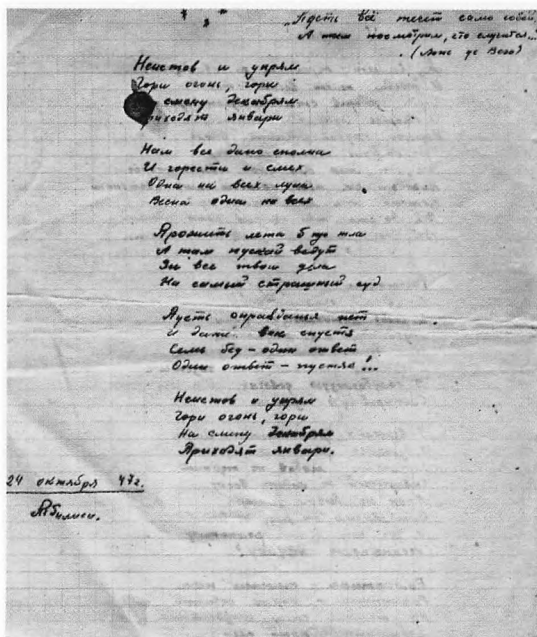 „Пусть всё течет само собой,
А там посмотрим, что случится..."
(Лопе де Вега)
Неистов и упрям
Гори огонь, гори
смену Декабрям
риходят январи
Нам все дано сполна
И горести и смех
Одна на всех луна
Весна одна на всех
Прожить лета б до тла
А там пускай ведут
За все твои дела
На самый страшный суд
Пусть оправданья нет
И даже век спустя
Семь бед – один ответ
Один ответ – пустяк!..
Неистов и упрям
Гори огонь, гори
На смену Декабрям
Приходят январи.
24 октября 47г.
Тбилиси.